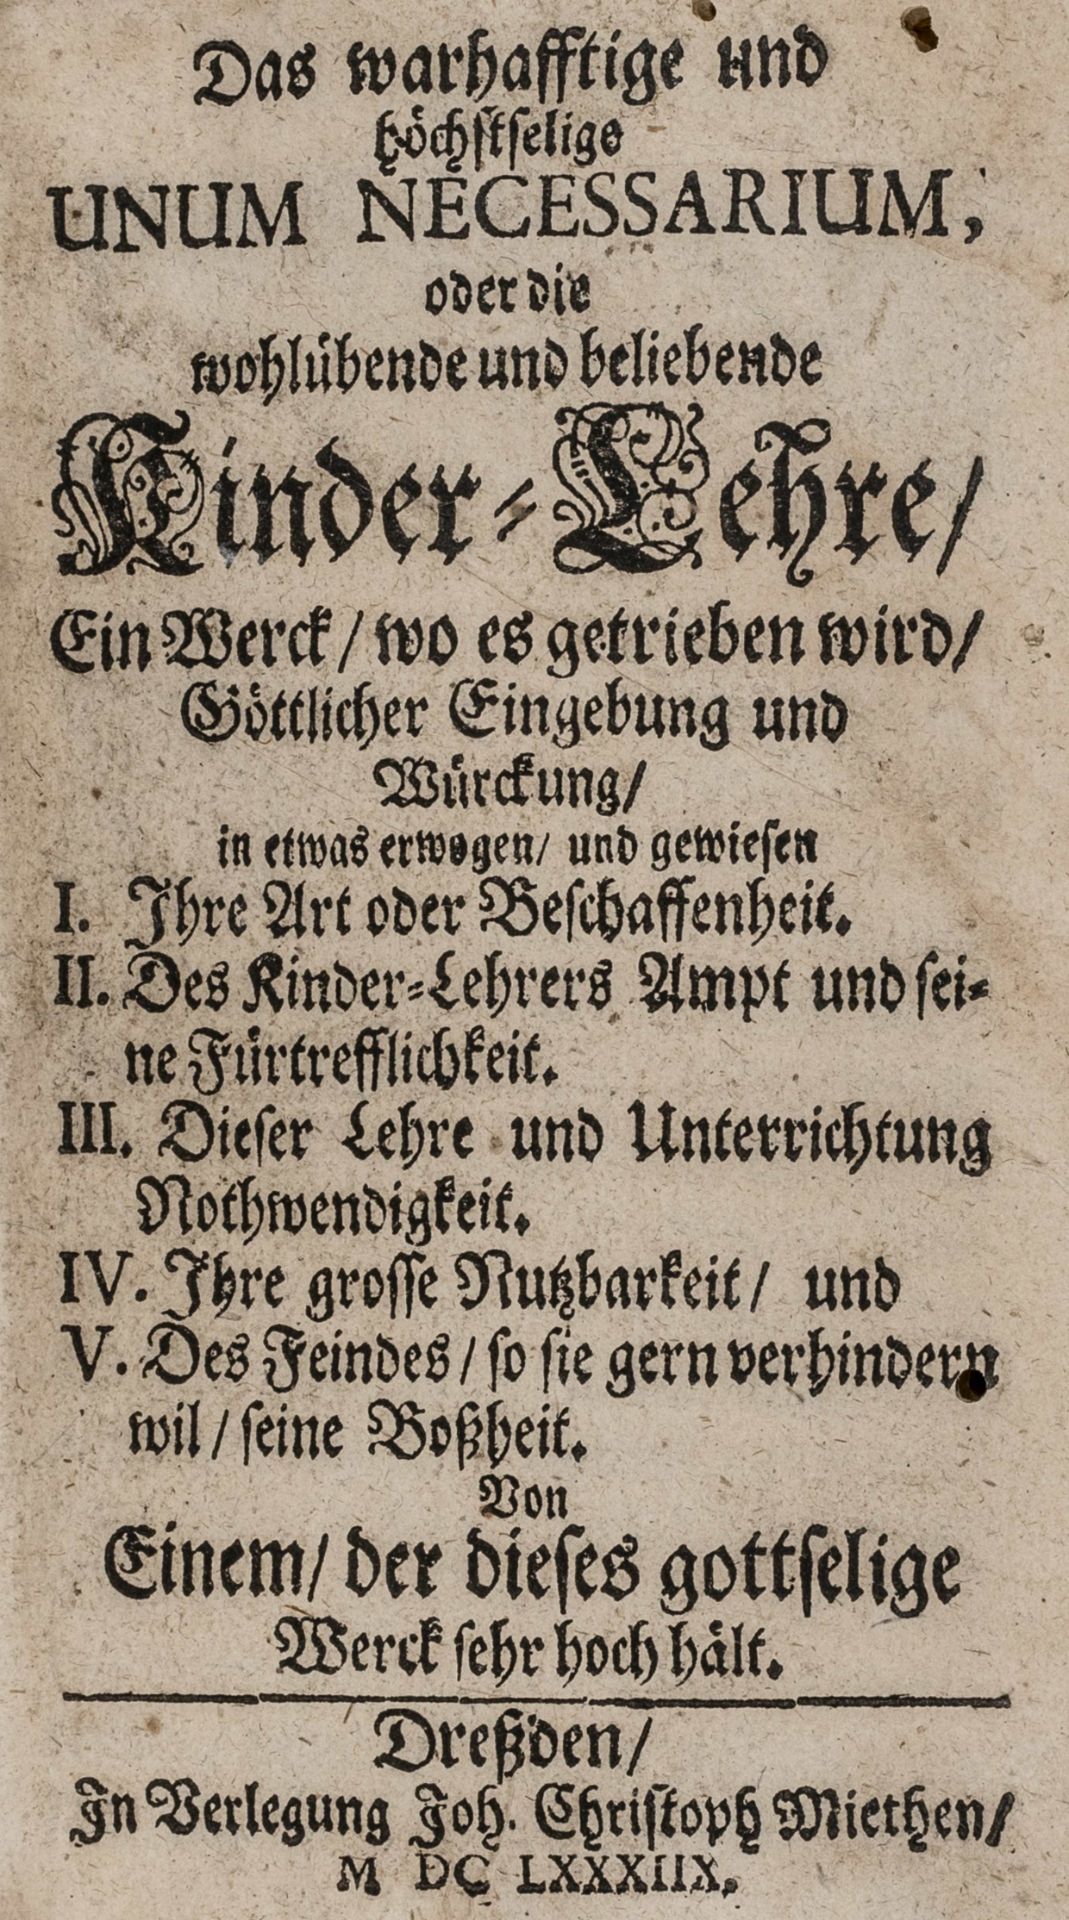 Das warhafftige und
höchstselige
UNUM NECESSARIUM,
oder die
wohlübende und beliebende
Kinder-Lehre/
Ein Werck/ wo es getrieben wird/
Göttlicher Eingebung und
Würckung/
in etwas erwogen/ und gewiesen
I. Ihre Art oder Beschaffenheit.
II. Des Kinder-Lehrers Ampt und sei-
ne Fürtrefflichkeit.
III. Dieser Lehre und Unterrichtung
Nothwendigkeit.
IV. Ihre grosse Nutzbarkeit/ und
V. Des Feindes/ so sie gern verhindern
wil/ seine Boßheit.
Von
Einem/ der dieses gottselige
Werck sehr hoch hält.
Dreßden/
In Verlegung Joh. Christoph Miethen/
M DC LXXXIIX.